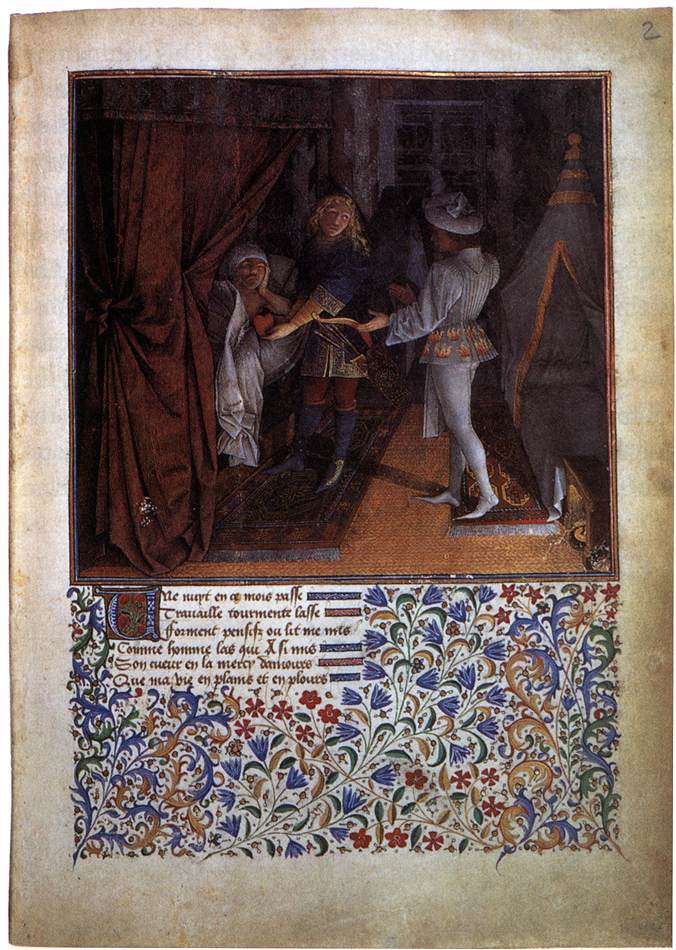 2
Une nuyt en ce mois passe
Travaille tourmente lasse
Forment pensifz ou lit me mis
Comme homme las qui A si mis
Son cueur en la mercy damours
Que ma vie en plains et en plours